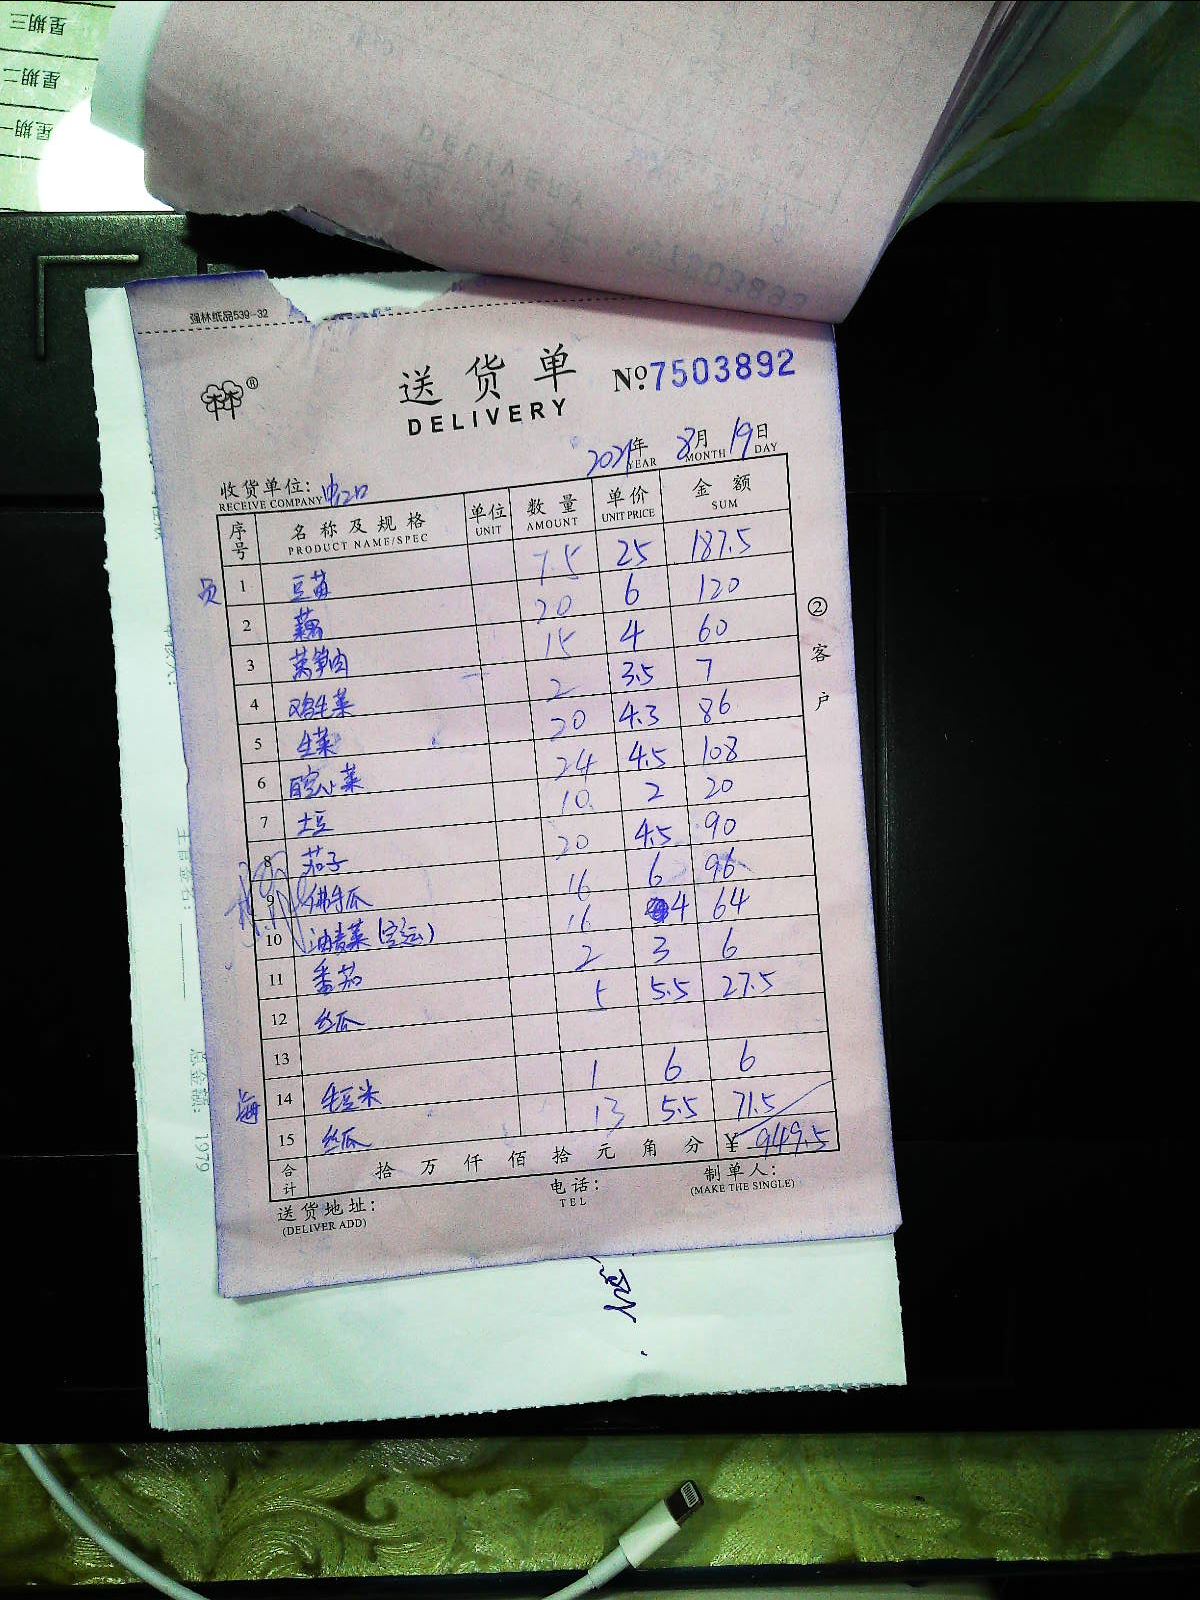 星期三
星期二
星期一
强林纸品539-32
送货单
DELIVERY
№:7503892
2021年 8月 19日
YEAR MONTH DAY
收货单位:
RECEIVE COMPANY
序号 名称及规格 单位 数量 单价 金额
PRODUCT NAME/SPEC UNIT AMOUNT UNIT PRICE SUM
员 1 豆苗 7.5 25 187.5
2 藕 20 6 120
3 莴笋肉 15 4 60
4 鸡毛菜 2 3.5 7
5 生菜 20 4.3 86
6 菜 24 4.5 108
7 土豆 10 2 20
8 茄子 20 4.5 90
9 佛手瓜 16 6 96
10 油麦菜(空运) 16 4 64
11 番茄 2 3 6
12 丝瓜 5 5.5 27.5
13
海 14 毛豆米 1 6 6
15 丝瓜 13 5.5 71.5
合计 拾 万 仟 佰 拾 元 角 分 ¥ 949.5
送货地址: 电话: 制单人:
(DELIVER ADD) TEL (MAKE THE SINGLE)
②客户
总金额: 1979